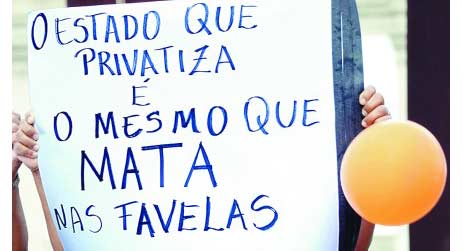 O ESTADO QUE
PRIVATIZA
É
O MESMO QUE
MATA
NAS FAVELAS